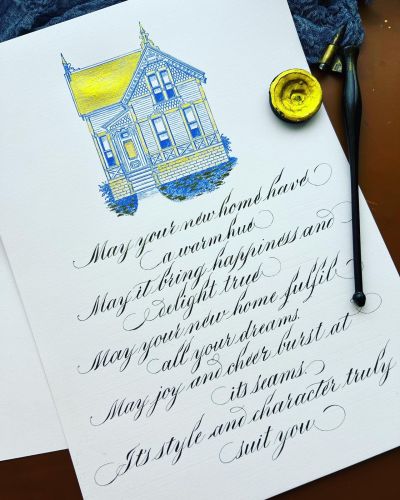 May your new home have
a warm hue
May it bring happiness and
delight true
May your new home fulfil
all your dreams.
May joy and cheer burst at
its seams.
Its style and character truly
suit you